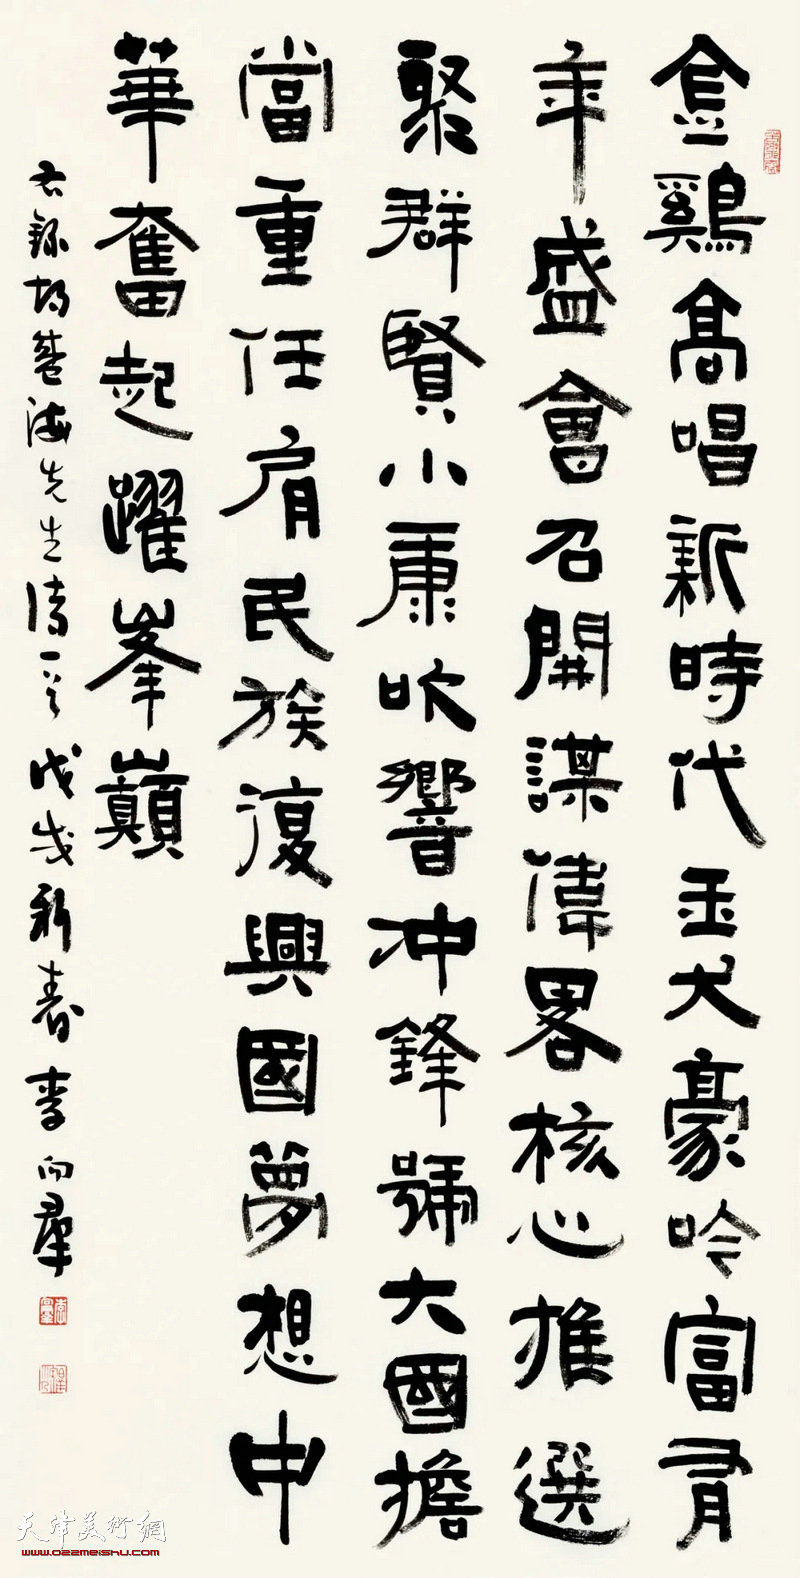 金鷄高唱新時代玉犬豪吟富有
年盛會召開謀偉畧核心推選
聚群賢小康吹響冲鋒號大國擔
當重任肩民族復興國夢想中
華奮起躍峯巔
右錄海先生詩一首戊戌新春李向群
天津美術網
www.022meishu.com